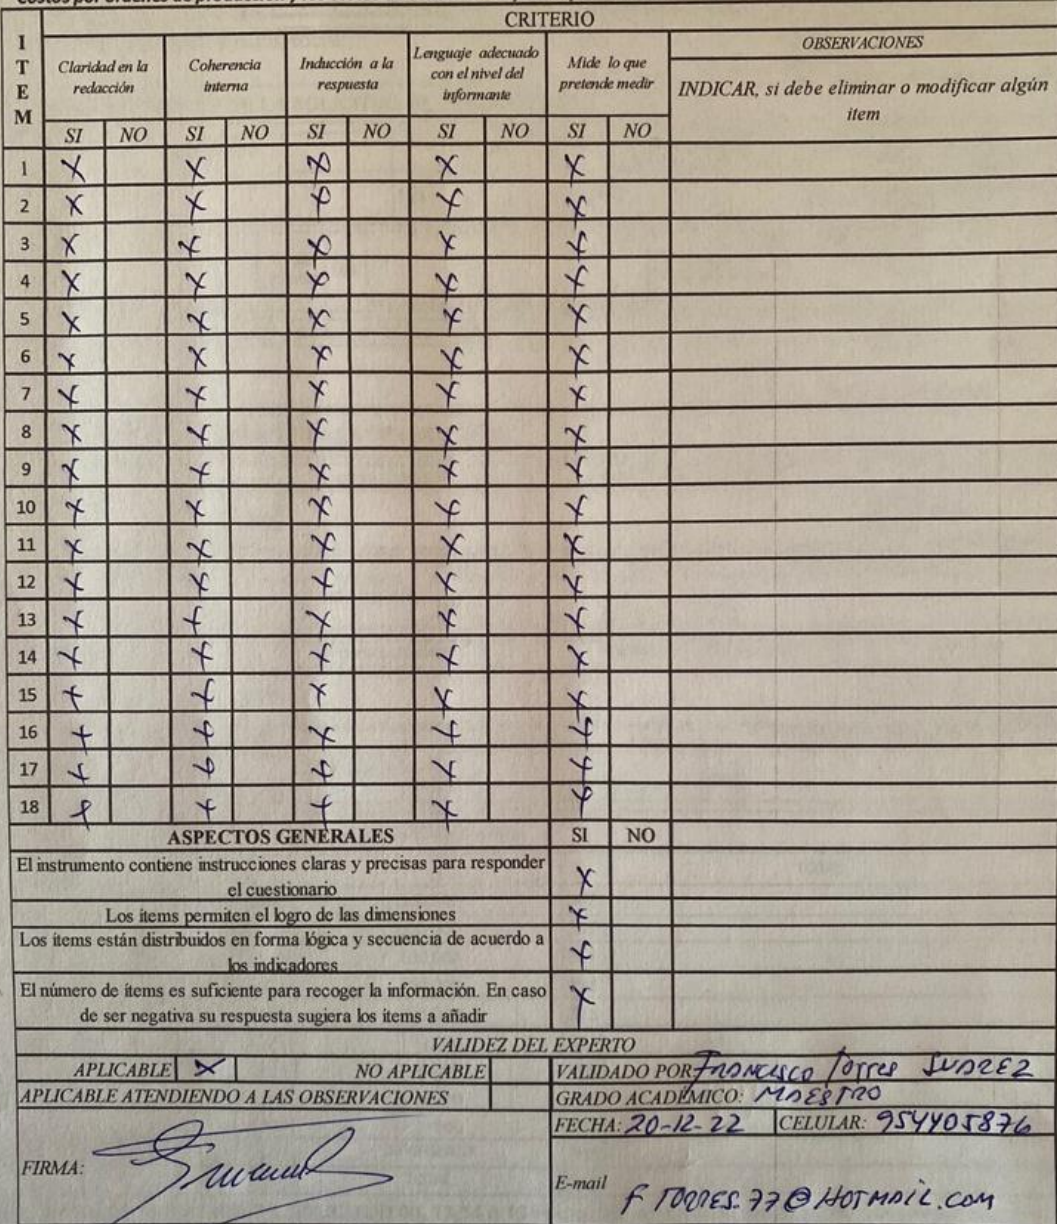 Costos por órdenes de producción y
CRITERIO
ITEM
Claridad en la redacción
Coherencia interna
Inducción a la respuesta
Lenguaje adecuado con el nivel del informante
Mide lo que pretende medir
OBSERVACIONES
INDICAR, si debe eliminar o modificar algún item
SI NO SI NO SI NO SI NO SI NO
1 X X X X X
2 X X X X X
3 X X X X X
4 X X X X X
5 X X X X X
6 X X X X X
7 X X X X X
8 X X X X X
9 X X X X X
10 X X X X X
11 X X X X X
12 X X X X X
13 X X X X X
14 X X X X X
15 X X X X X
16 X X X X X
17 X X X X X
18 X X X X X
ASPECTOS GENERALES SI NO
El instrumento contiene instrucciones claras y precisas para responder
el cuestionario X
Los ítems permiten el logro de las dimensiones X
Los ítems están distribuidos en forma lógica y secuencia de acuerdo a
los indicadores X
El número de ítems es suficiente para recoger la información. En caso
de ser negativa su respuesta sugiera los ítems a añadir X
VALIDEZ DEL EXPERTO
APLICABLE X NO APLICABLE
VALIDADO POR FRANCISCO TORRES SUAREZ
APLICABLE ATENDIENDO A LAS OBSERVACIONES
GRADO ACADÉMICO: MAESTRO
FECHA: 20-12-22 CELULAR: 954405876
FIRMA:
E-mail F TORRES.77@HOTMAIL.COM